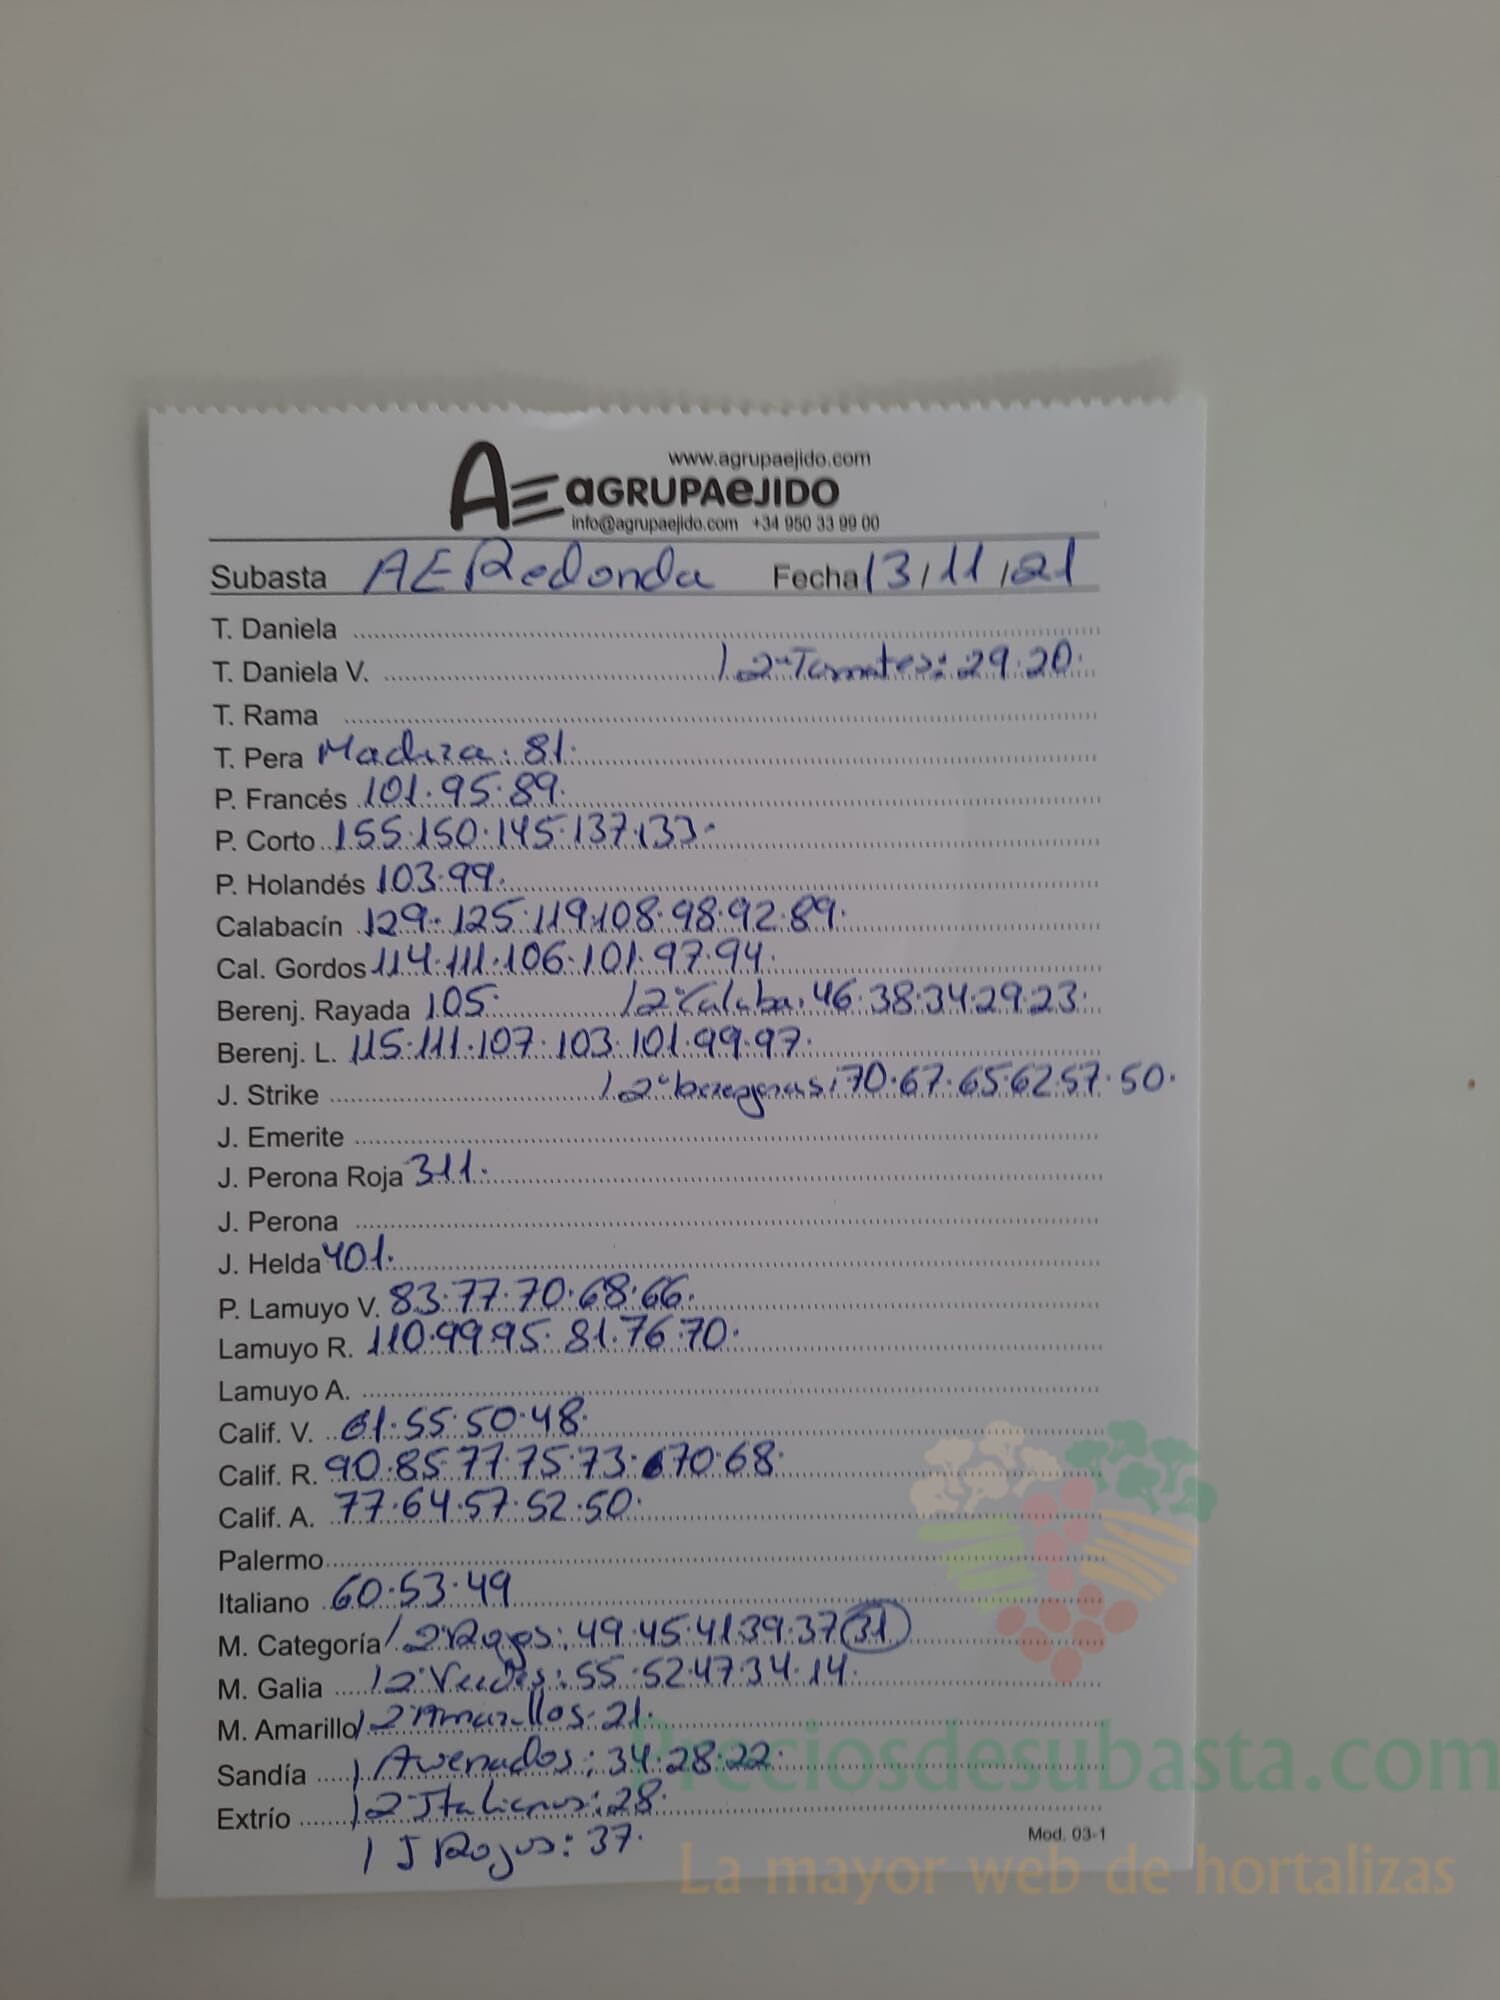 www.agrupaejido.com
AE aGRUPAeJIDO
info@agrupaejido.com +34 950 33 99 00
Subasta AE Redonda Fecha 13/11/21
T. Daniela
T. Daniela V. / 2ª Tomates: 29.20.
T. Rama
T. Pera Madura: 81.
P. Francés 101.95.89.
P. Corto 155.150.145.137.133.
P. Holandés 103.99.
Calabacín 129.125.119.108.98.92.89.
Cal. Gordos 114.111.106.101.97.94.
Berenj. Rayada 105. / 2ª Calaba. 46.38.34.29.23.
Berenj. L. 115.111.107.103.101.99.97.
J. Strike / 2ª berengenas: 70.67.65.62.57.50.
J. Emerite
J. Perona Roja 311.
J. Perona
J. Helda 401.
P. Lamuyo V. 83.77.70.68.66.
Lamuyo R. 110.99.95.81.76.70.
Lamuyo A.
Calif. V. 61.55.50.48.
Calif. R. 90.85.77.75.73.70.68.
Calif. A. 77.64.57.52.50.
Palermo
Italiano 60.53.49
M. Categoría / 2ª Rojos: 49.45.41.39.37 31
M. Galia / 2ª Verdes: 55.52.47.34.14.
M. Amarillo / 2ª Amarillos. 21.
Sandía / Asurcados: 34.28.22.
Extrío / 2 Italianos: 28.
/ J Rojos: 37.
Mod. 03-1
Preciosdesubasta.com
La mayor web de hortalizas